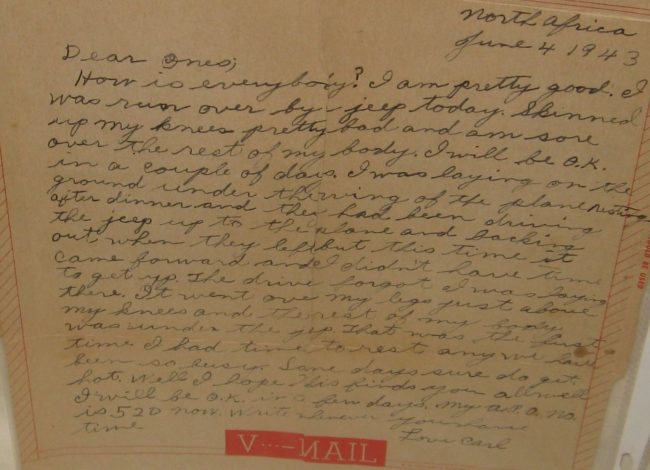 North Africa
June 4 1943
Dear Ones;
How is everybody? I am pretty good. I
was run over by jeep today. Skinned
up my knees pretty bad and am sore
over the rest of my body. I will be O.K.
in a couple of days. I was laying on the
ground under the wing of the plane resting
after dinner and they had been driving
the jeep up to the plane and backing
out, when they left but this time it
came forward and I didn't have time
to get up. The drive forgot I was laying
there. It went ove my legs just above
my knees and the rest of my body
was under the jep. That was the first
time I had time to rest any we have
been so busy. days sure do get
hot. Well I hope this finds you all well
I will be O.K. in a few days. My A.P.O. No.
is 520 now. Write whenever you have
time Love Carl
V···—MAIL
BE USED